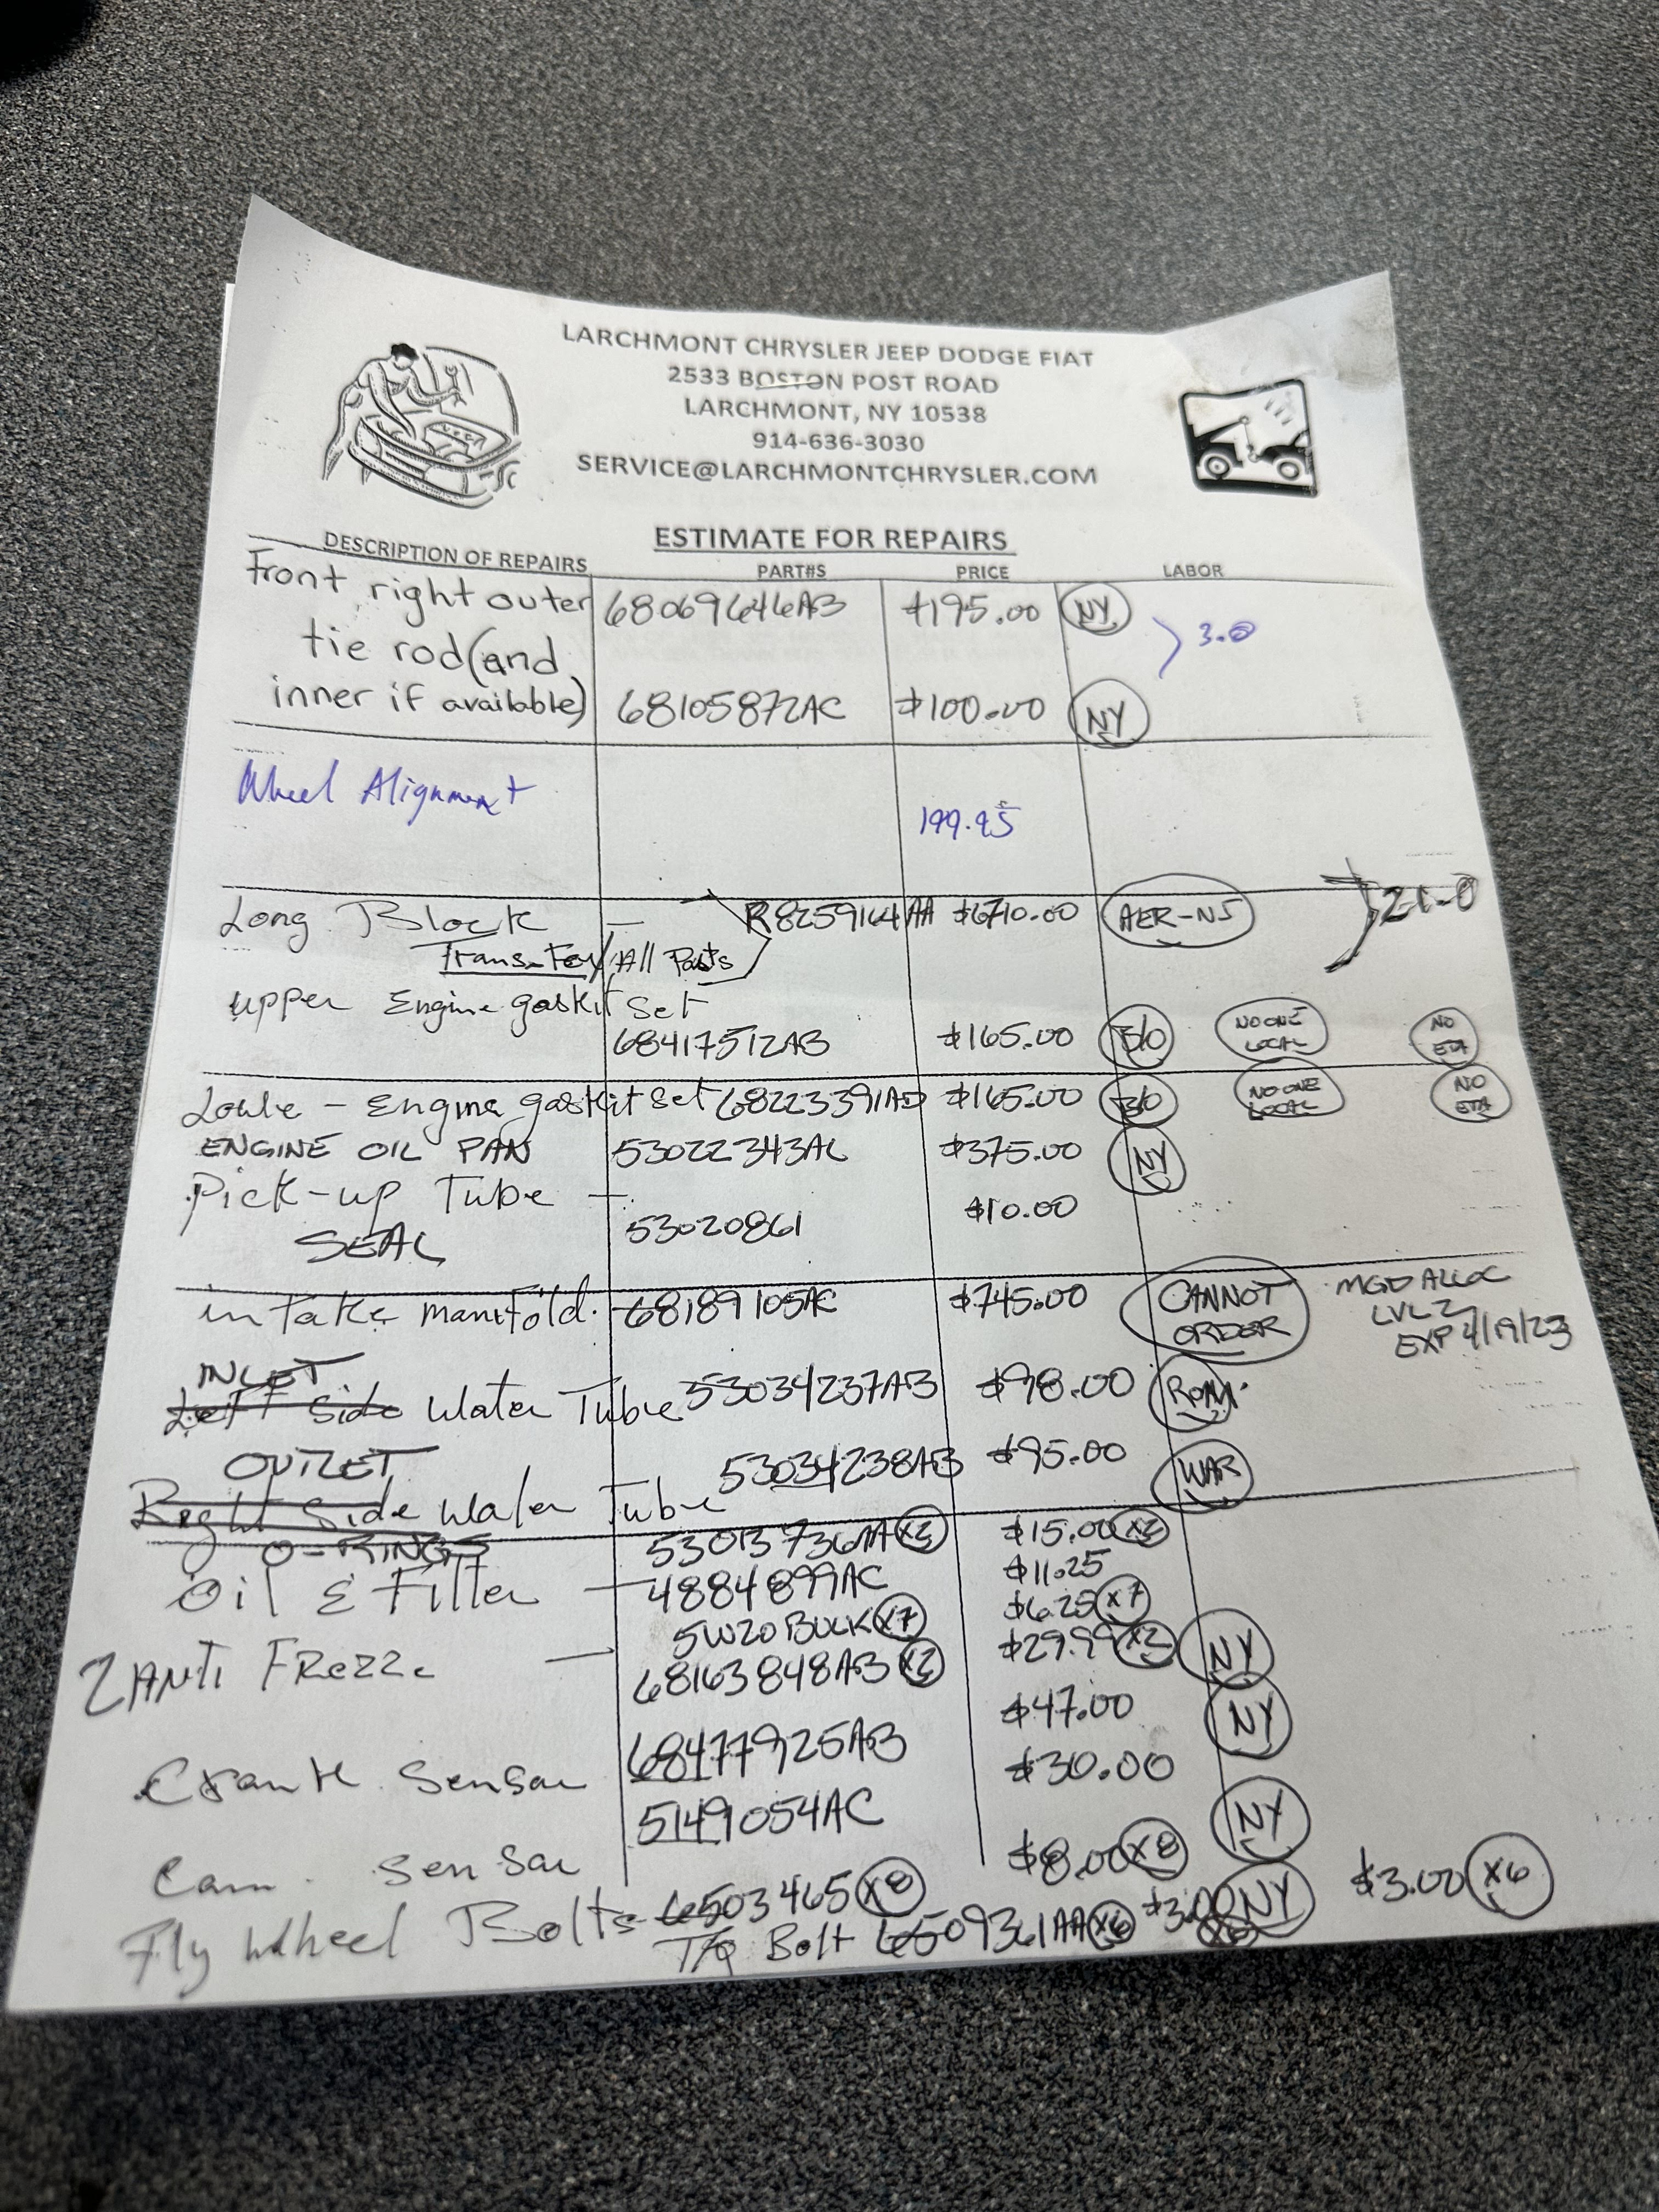 LARCHMONT CHRYSLER JEEP DODGE FIAT
2533 BOSTON POST ROAD
LARCHMONT, NY 10538
914-636-3030
SERVICE@LARCHMONTCHRYSLER.COM
ESTIMATE FOR REPAIRS
DESCRIPTION OF REPAIRS PART#S PRICE LABOR
Front right outer 68069646AB $195.00 NY
tie rod (and 3.0
inner if available) 68105872AC $100.00 NY
Wheel Alignment 199.95
Long Block — R8259164AA $6710.00 AER-NJ 21-0
Trans-Fer/All Parts
upper Engine gasKit Set
68417512AB $165.00 B/O NO ONE LOCAL NO ETA
Lowe - Engine gasKit Set 68223391AD $165.00 B/O NO ONE LOCAL NO ETA
ENGINE OIL PAN 53022343AC $375.00 NY
Pick-up Tube — $10.00
SEAL 53020861
inTake manifold. 68189105AC $745.00 CANNOT ORDER MGD ALLOC
LVL 2
EXP 4/19/23
INLET
Left Side Water Tube 53034237AB $98.00 ROM
OUTLET 53034238AB $95.00 WAR
Right Side Water Tube
O-RINGS 53013736AA X2 $15.00 X2
Oil & Filter — 4884899AC $11.25
5W20 BULK X7 $6.25 X7
2 ANTI FRezze — 68163848AB X2 $29.99 X2 NY
Crank Sensor 68477925AB $47.00 NY
Cam. Sensor 5149054AC $30.00 NY
Fly Wheel Bolts 6503465 X8 $8.00 X8 NY
T/Q Bolt 6509361AA X6 $3.00 $3.00 X6